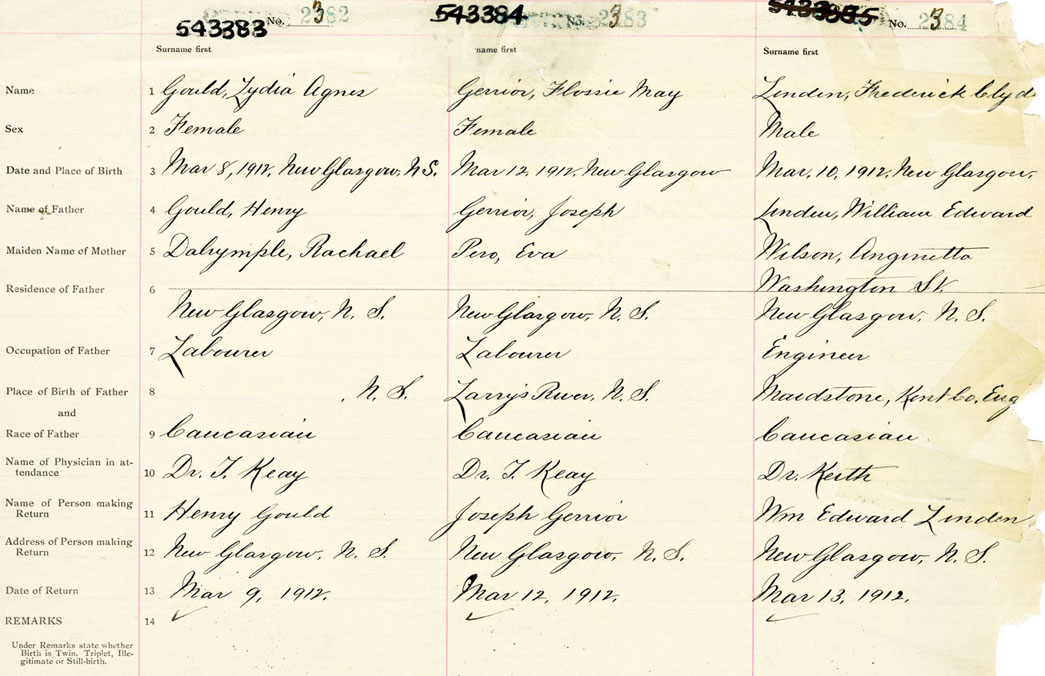 543383 No. 2382 543384 No. 2383 No. 2384
Surname first name first Surname first
Name 1 Gould, Lydia Agnes Gerrior, Flossie May Linden, Frederick Clyd
Sex 2 Female Female Male
Date and Place of Birth 3 Mar 8, 1912, New Glasgow, N.S. Mar 12, 1912, New Glasgow Mar. 10, 1912, New Glasgow,
Name of Father 4 Gould, Henry Gerrior, Joseph Linden, William Edward
Maiden Name of Mother 5 Dalrymple, Rachael Pero, Eva Wilson, Anginetta
Washington St.
Residence of Father 6 New Glasgow, N. S. New Glasgow, N. S. New Glasgow, N. S.
Occupation of Father 7 Labourer Labourer Engineer
Place of Birth of Father 8 , N. S. Larry's River, N. S. Maidstone, Kent Co, Eng
and
Race of Father 9 Caucasian Caucasian Caucasian
Name of Physician in at-
tendance 10 Dr. T. Keay Dr. T. Keay Dr. Keith
Name of Person making
Return 11 Henry Gould Joseph Gerrior Wm Edward Linden
Address of Person making
Return 12 New Glasgow, N. S. New Glasgow, N. S. New Glasgow, N. S.
Date of Return 13 Mar 9, 1912. Mar 12, 1912. Mar 13, 1912.
REMARKS 14
Under Remarks state whether
Birth is Twin, Triplet, Ille-
gitimate or Still-birth.